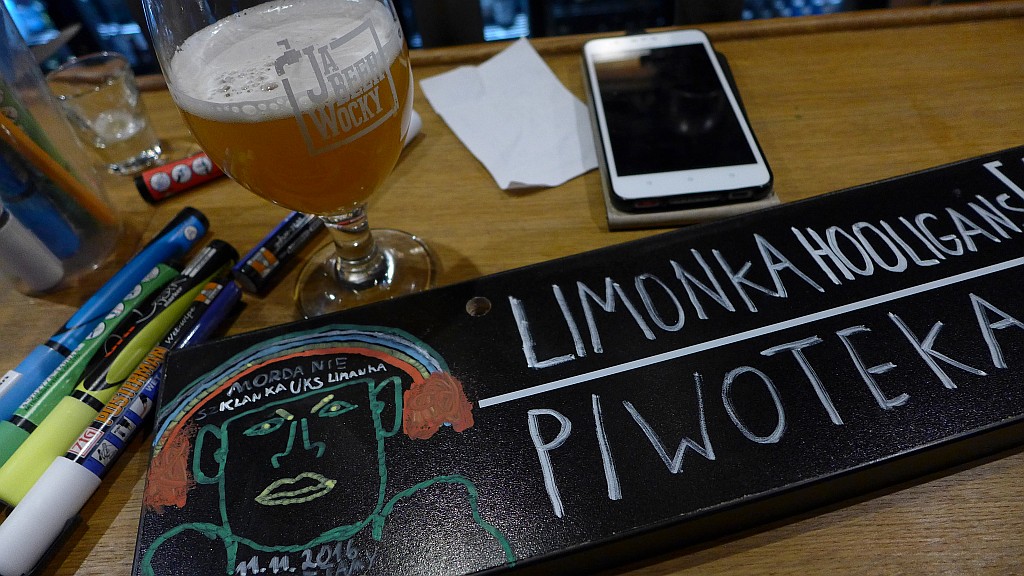 JA
BEER
WOCKY
LIMONKA HOOLIGANS
PIWOTEKA
MORDA NIE
SZKLANKA UKS LIMANKA
11.11.2016